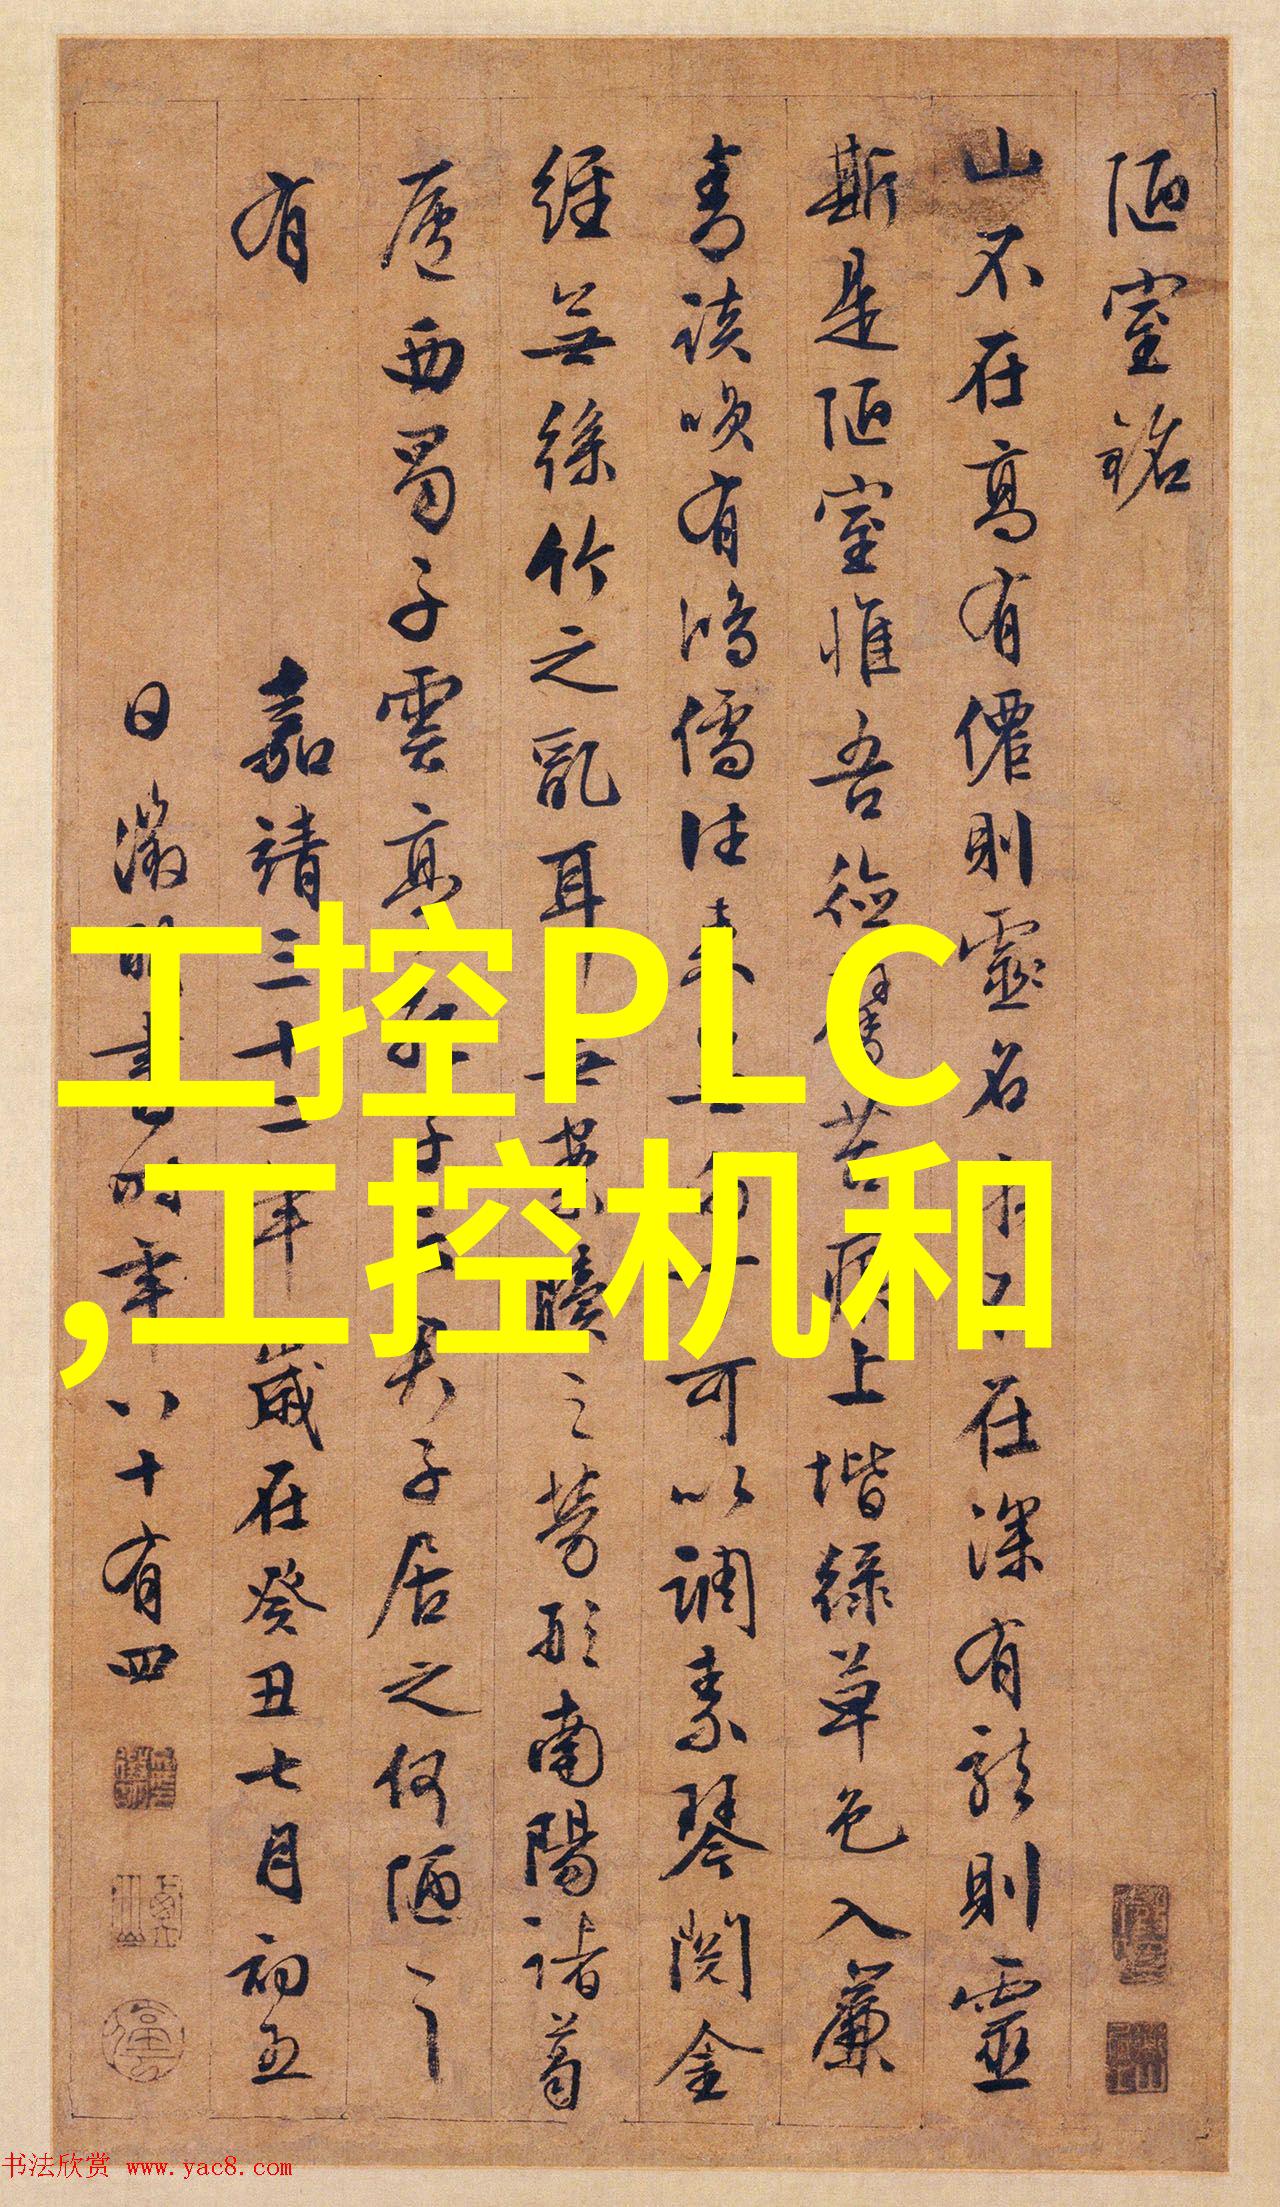 陋室銘
山不在高有僊則靈名水不在深有龍則靈
斯是陋室惟吾德馨苔痕上堦綠草色入簾
青談咲有鴻儒往來無白丁可以調素琴閱金
經無絲竹之亂耳無案牘之勞形南陽諸葛
廬西蜀子雲亭孔子云君子居之何陋之
有 嘉靖三十二年歲在癸丑七月初五
日徵明書時年八十有四
工控PLC
,工控机和
书法欣赏 www.yac8.com